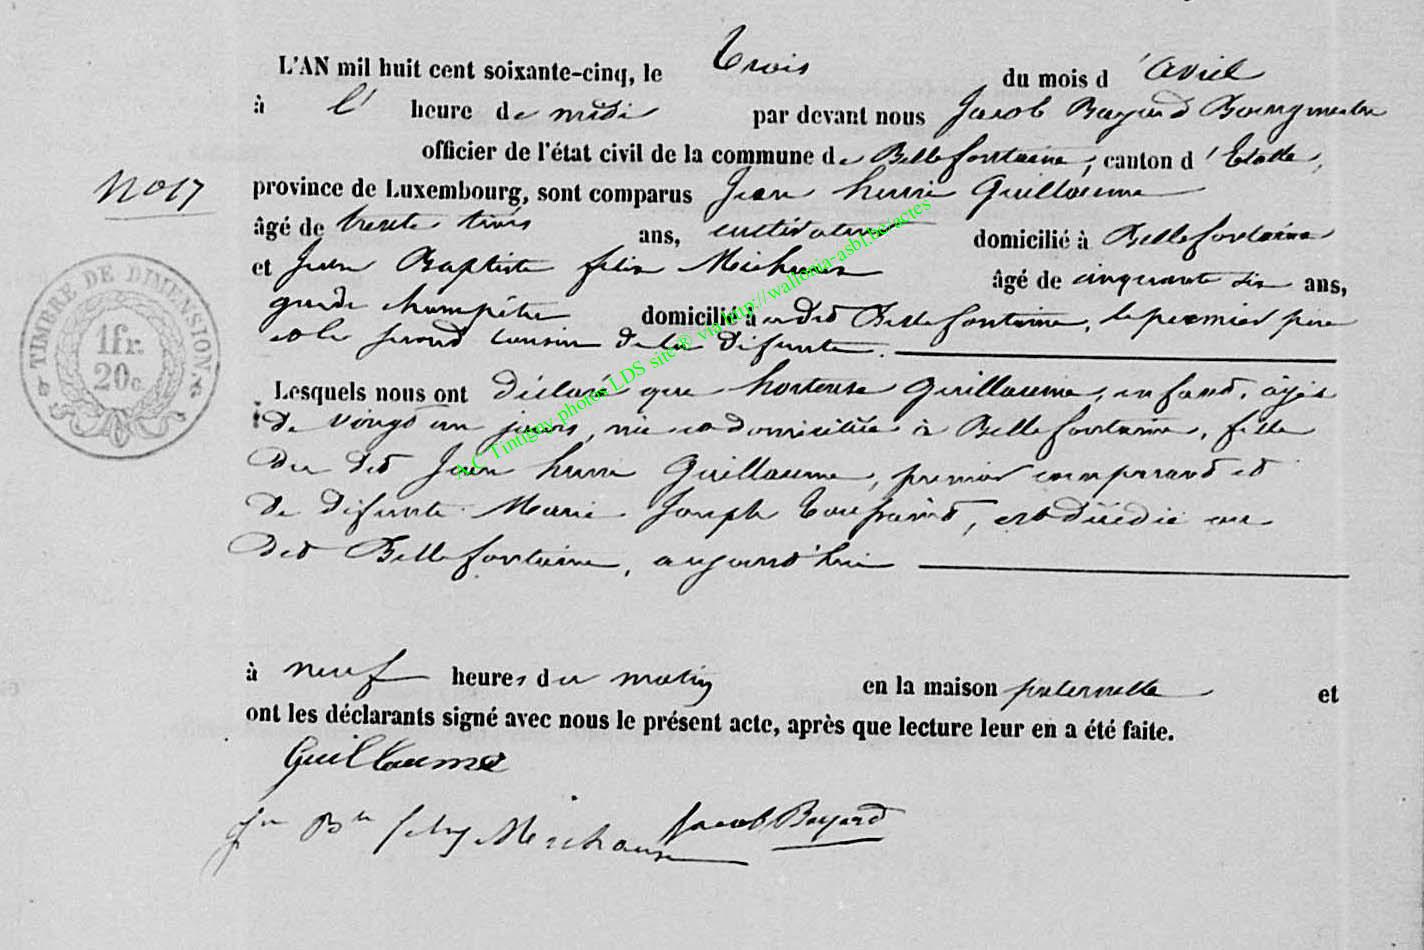 L'AN mil huit cent soixante-cinq, le trois du mois d'Avril
à l' heure de midi par devant nous Jacob Bayard Bourgmestre
officier de l'état civil de la commune de Bellefontaine, canton d'Etalle,
N° 17
province de Luxembourg, sont comparus Jean henri Guillaume
âgé de trente trois ans, cultivateur domicilié à Bellefontaine
et Jean Baptiste felix âgé de cinquante six ans,
garde champêtre domicilié à dit Bellefontaine, le premier père
et le second cousin de la défunte.
Lesquels nous ont déclaré que hortense Guillaume, enfant, âgée
de vingt un jours, née et domiciliée à Bellefontaine, fille
du dit Jean henri Guillaume, premier comparant et
de défunte Marie Joseph est décédée au
dit Bellefontaine, aujourd'hui
à neuf heures du matin en la maison paternelle et
ont les déclarants signé avec nous le présent acte, après que lecture leur en a été faite.
Guillaume
Jn Bte Jacob Bayard
TIMBRE DE DIMENSION.
1 fr.
20 c.
AC Tintigny photos LDS site ® via http://wallonia-asbl.be/actes